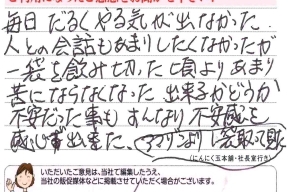 毎日だるくやる気が出なかった。
人との会話もあまりしたくなかったが
一袋を飲み切った頃よりあまり
苦にならなくなった 出来るかどうか
不安だった事もすんなり不安感を
感じず出来た、
(にんにく玉本舗・社長室行き)
いただいたご意見は、当社て編集したうえ、
当社の販促媒体などに掲載させていただく場合がございます。